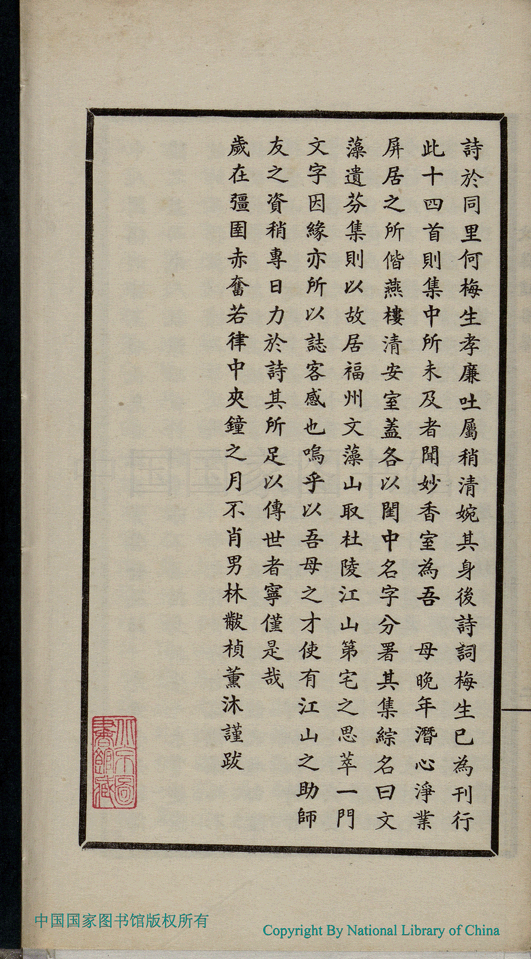 詩於同里何梅生孝廉吐屬稍清婉其身後詩詞梅生已為刊行
此十四首則集中所未及者聞妙香室為吾　母晚年潛心淨業
屏居之所偕燕樓清安室蓋各以閨中名字分署其集綜名曰文
藻遺芬集則以故居福州文藻山取杜陵江山第宅之思萃一門
文字因緣亦所以誌客感也嗚乎以吾母之才使有江山之助師
友之資稍專日力於詩其所足以傳世者寧僅是哉
歲在彊圉赤奮若律中夾鐘之月不肖男林黻楨薰沐謹跋
北京圖
書館藏
中国国家图书馆版权所有
Copyright By National Library of China